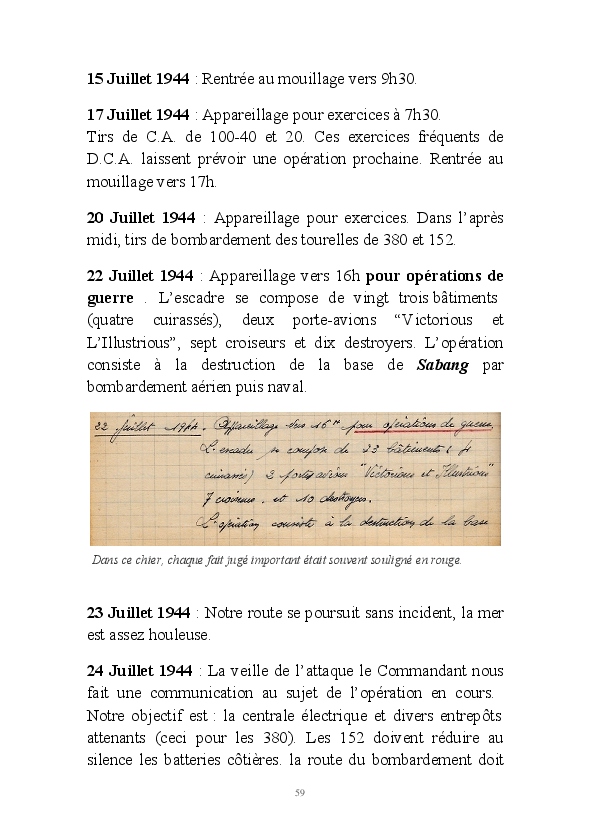 15 Juillet 1944 : Rentrée au mouillage vers 9h30.
17 Juillet 1944 : Appareillage pour exercices à 7h30.
Tirs de C.A. de 100-40 et 20. Ces exercices fréquents de
D.C.A. laissent prévoir une opération prochaine. Rentrée au
mouillage vers 17h.
20 Juillet 1944 : Appareillage pour exercices. Dans l’après
midi, tirs de bombardement des tourelles de 380 et 152.
22 Juillet 1944 : Appareillage vers 16h pour opérations de
guerre . L’escadre se compose de vingt trois bâtiments
(quatre cuirassés), deux porte-avions “Victorious et
L’Illustrious”, sept croiseurs et dix destroyers. L’opération
consiste à la destruction de la base de Sabang par
bombardement aérien puis naval.
22 Juillet 1944. Appareillage vers 16h pour opérations de guerre,
L'escadre se compose de 23 bâtiments ( 4
cuirassés) 2 portes avions "Victorious et Illustrious"
7 croiseurs. et 10 destroyers.
L'opération consiste à la destruction de la base
Dans ce chier, chaque fait jugé important était souvent souligné en rouge.
23 Juillet 1944 : Notre route se poursuit sans incident, la mer
est assez houleuse.
24 Juillet 1944 : La veille de l’attaque le Commandant nous
fait une communication au sujet de l’opération en cours.
Notre objectif est : la centrale électrique et divers entrepôts
attenants (ceci pour les 380). Les 152 doivent réduire au
silence les batteries côtières. la route du bombardement doit
59